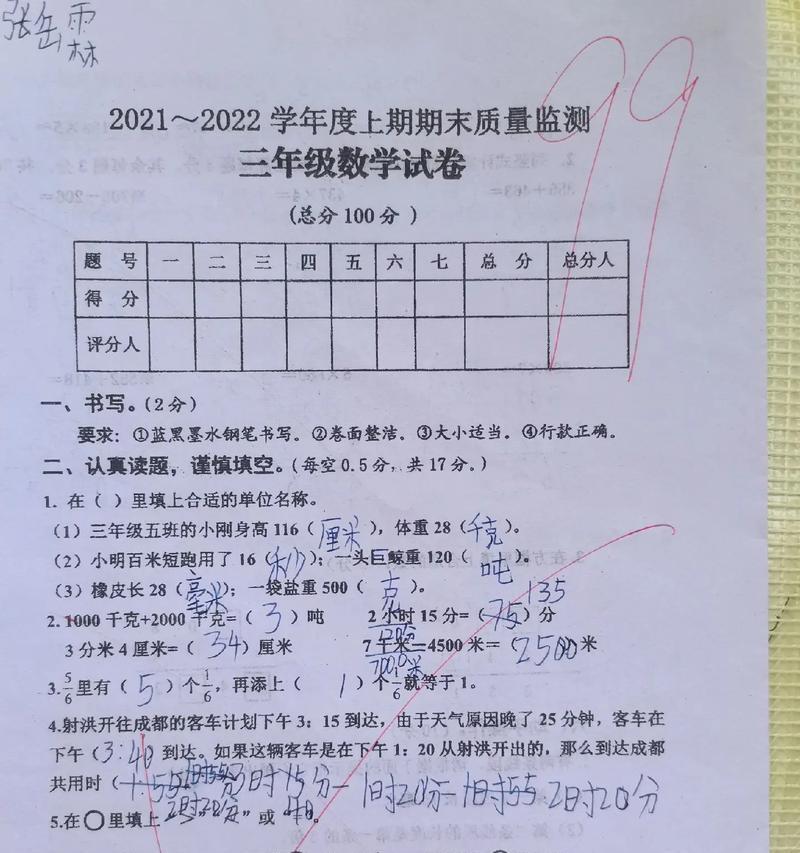 张岳霖
99
2021～2022 学年度上期期末质量监测
三年级数学试卷
(总分 100 分 )
题 号 一 二 三 四 五 六 七 总 分 总分人
得 分
评分人
一、书写。(2 分)
要求：①蓝黑墨水钢笔书写。②卷面整洁。③大小适当。④行款正确。
二、认真读题，谨慎填空。(每空 0.5 分，共 17 分。)
1. 在（ ）里填上合适的单位名称。
(1) 三年级五班的小刚身高 116（厘米），体重 28（千克）。
(2) 小明百米短跑用了 16（秒）；一头巨鲸重 120（吨）。
(3) 橡皮长 28（毫米）；一袋盐重 500（克）。
135
2. 1000 千克+2000 千克=（3）吨 2 小时 15 分=（75）分
120分
3 分米 4 厘米=（34）厘米 7 千米－4500 米=（2500米
7000米
3. 5/6里有（5）个1/6，再添上（1）个1/6就等于 1。
4.射洪开往成都的客车计划下午 3：15 到达，由于天气原因晚了 25 分钟，客车在
下午（3:40 到达。如果这辆客车是在下午 1：20 从射洪开出的，那么到达成都
共用时（ 3时15分－1时20分=1时55 2时20分
2时20分
5.在○里填上 ” 或 “ 。